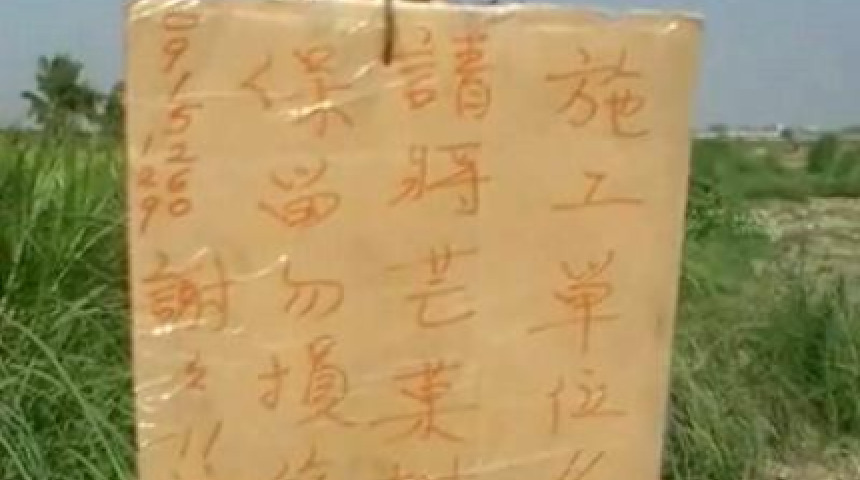 施工單位
請將芒菓
保留勿損
0915
126
290
謝々!!